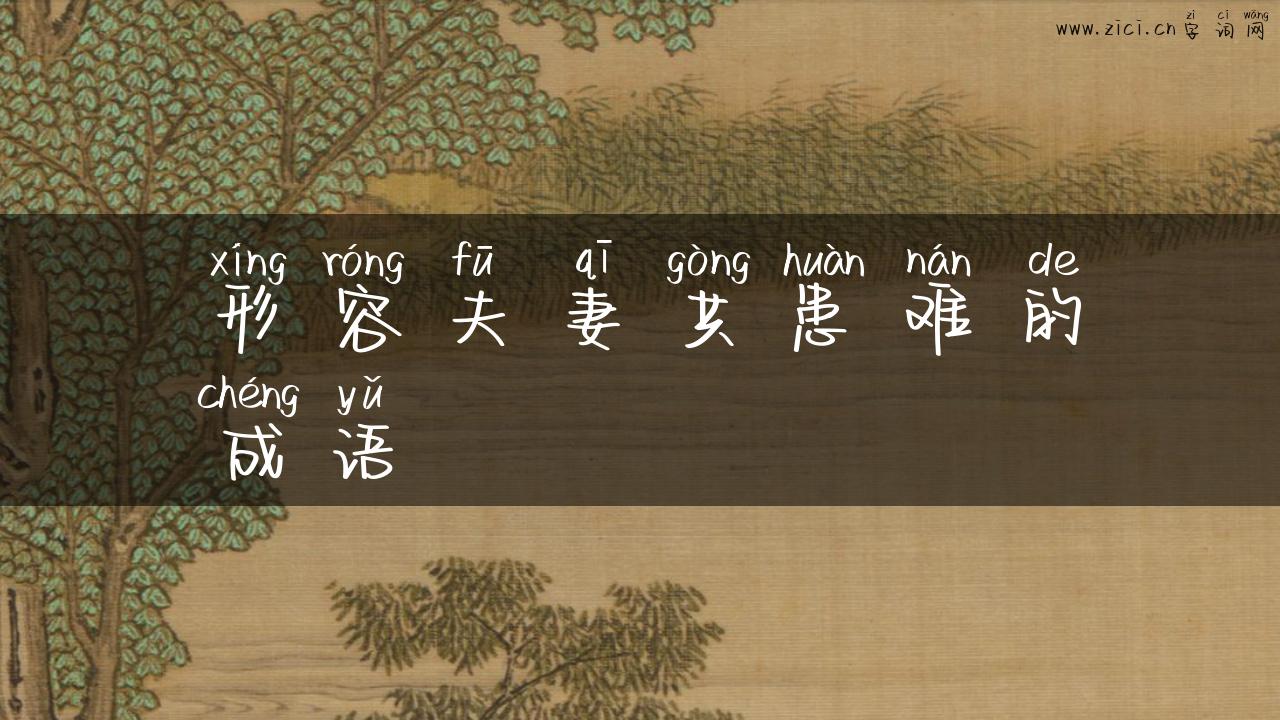 zì cí wǎng
www.zici.cn字词网
xíng róng fū qī gòng huàn nán de
形容夫妻共患难的
chéng yǔ
成语